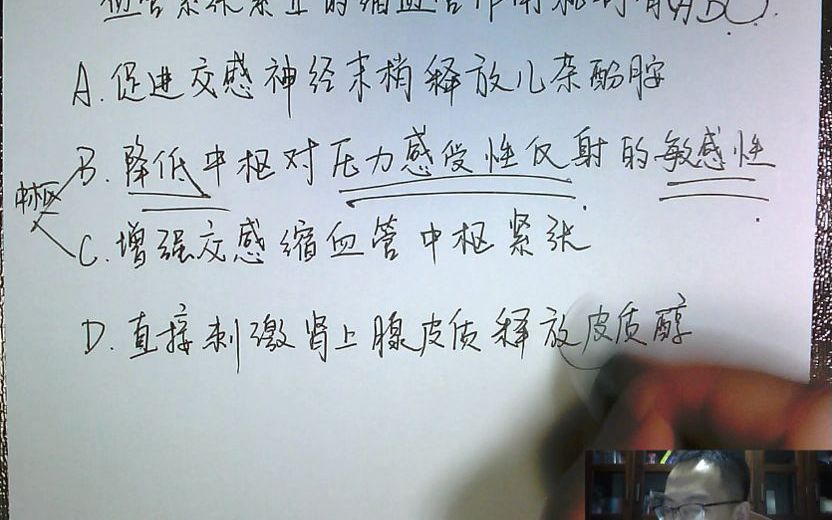 血管紧张素II的缩血管作用机制有(ABC).
A.促进交感神经末梢释放儿茶酚胺
B.降低中枢对压力感受性反射的敏感性
中枢
C.增强交感缩血管中枢紧张
D.直接刺激肾上腺皮质释放皮质醇